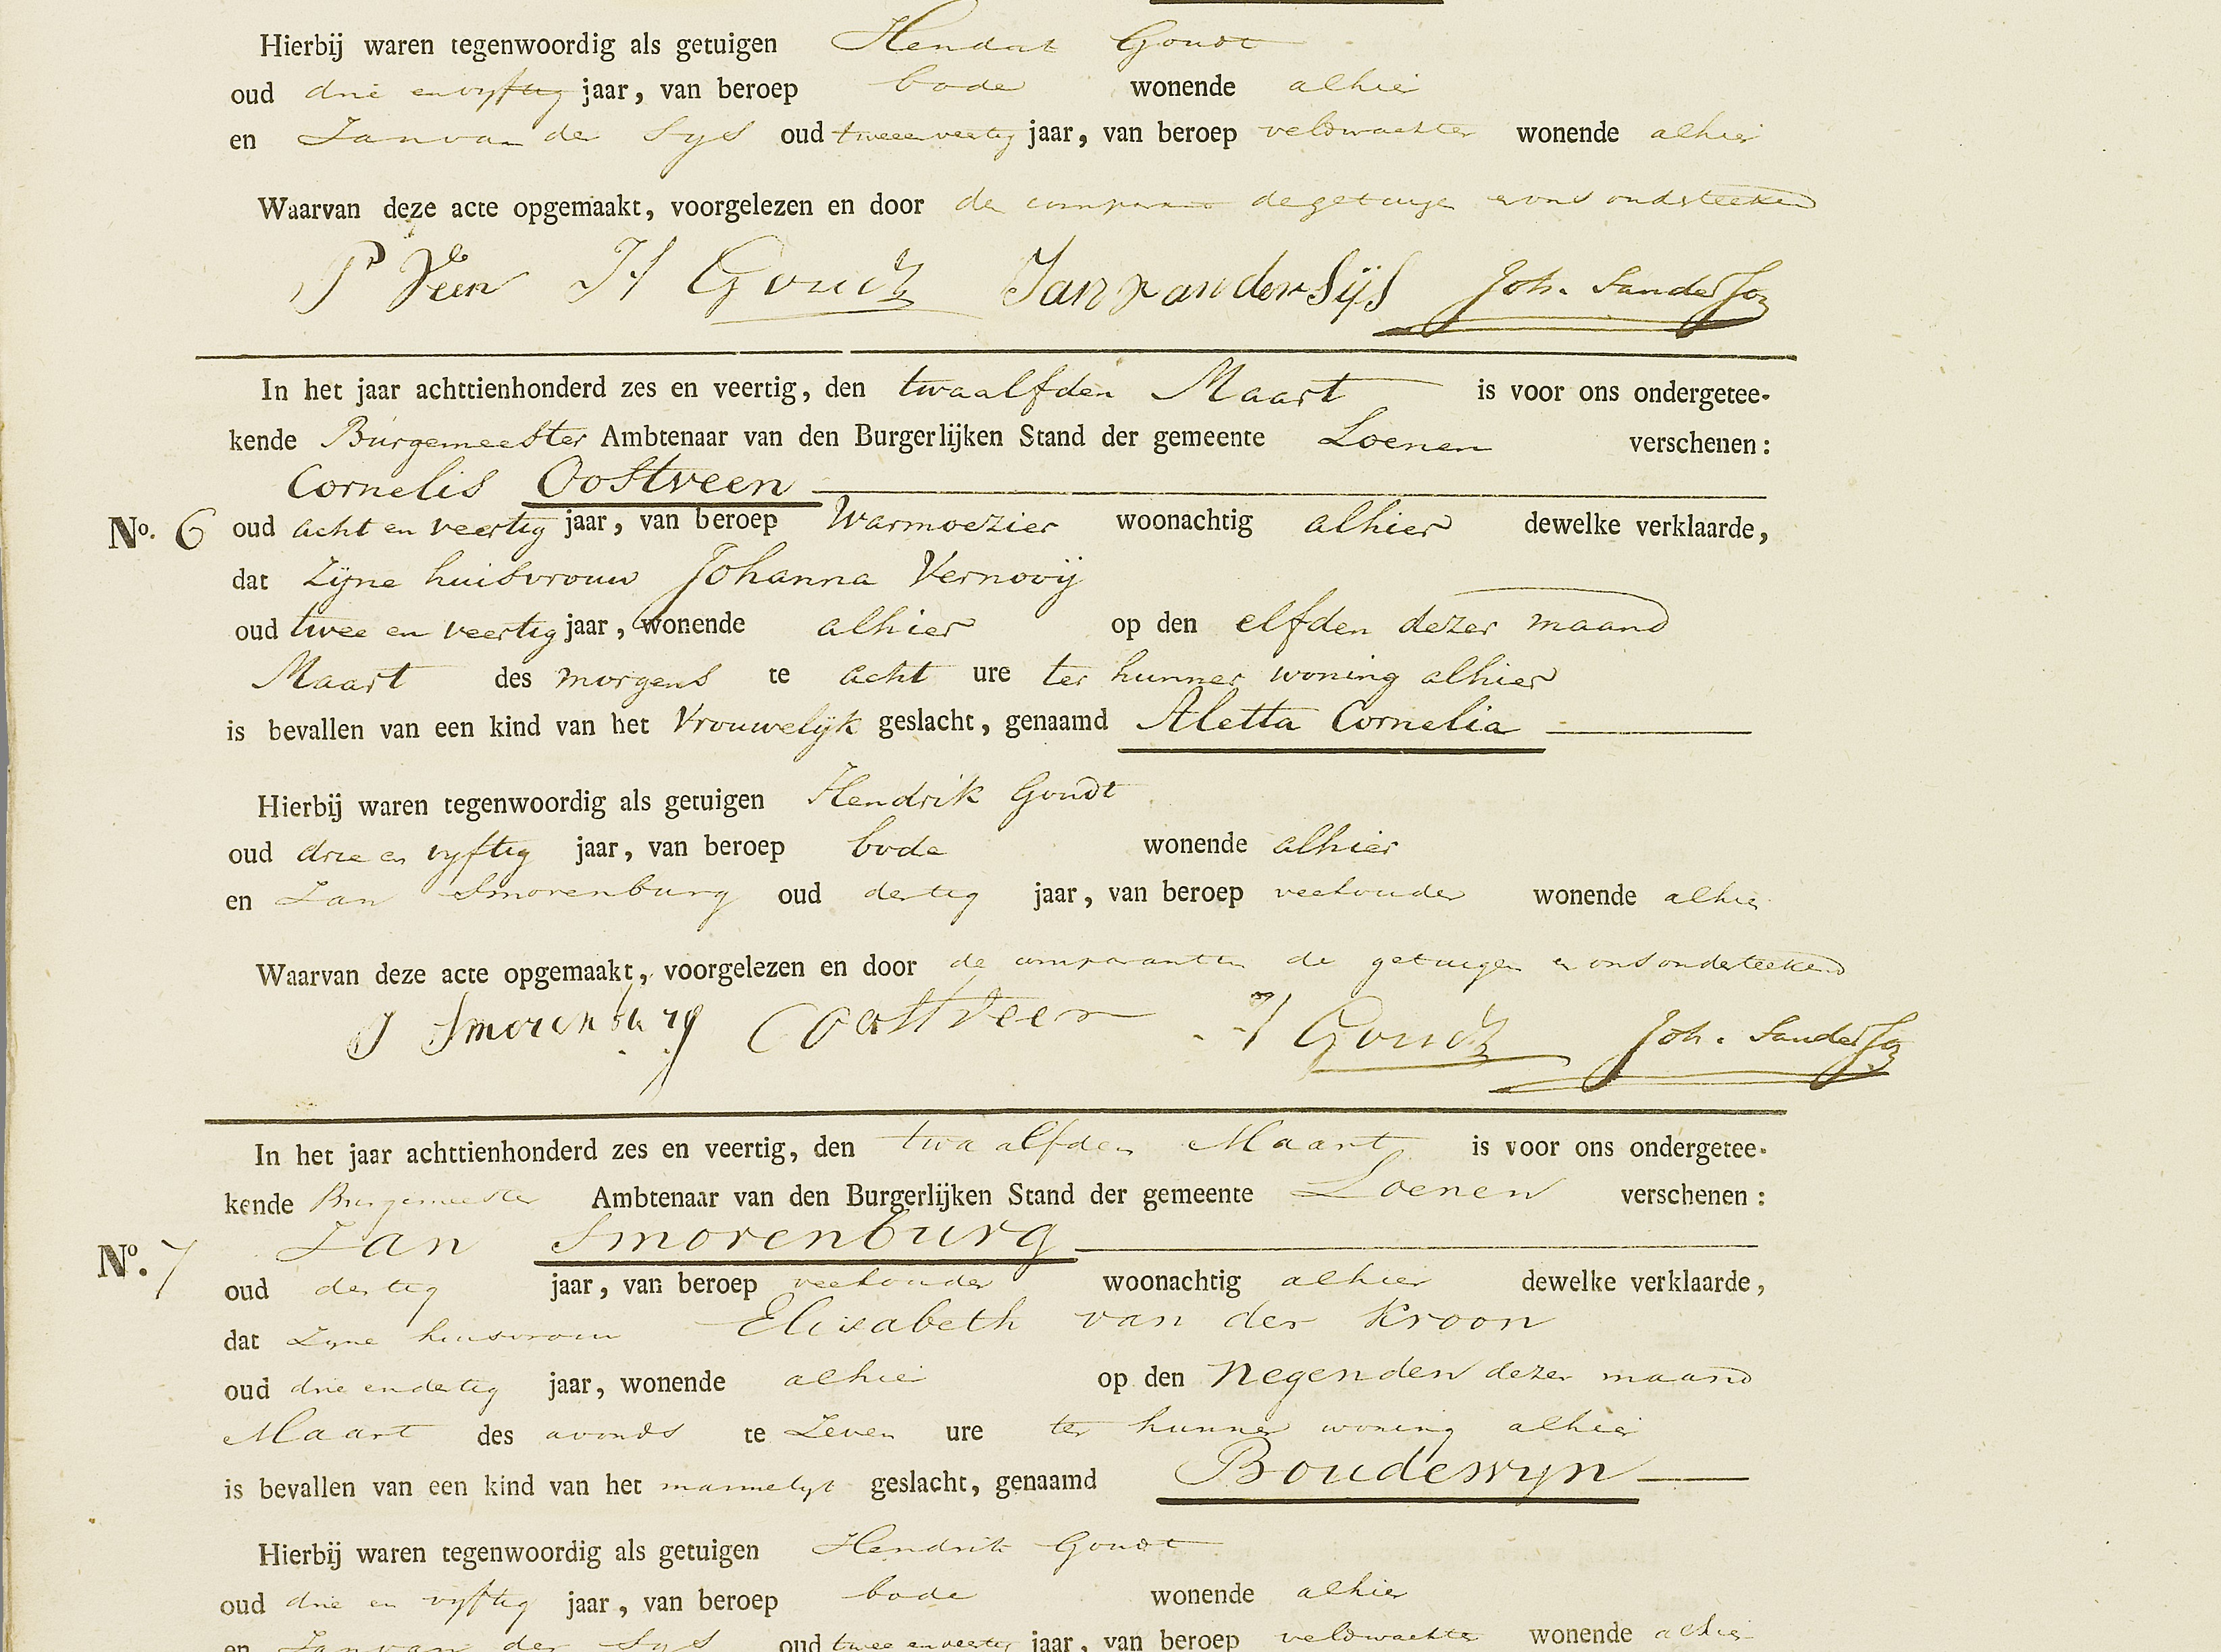 Hierbij waren tegenwoordig als getuigen Hendrik Goudt
oud drie en vyftig jaar, van beroep bode wonende alhier
en Jan van der Sys oud twee en veertig jaar, van beroep veldwachter wonende alhier
Waarvan deze acte opgemaakt, voorgelezen en door de comparant de getuigen en ons onderteekend
P Veen H Goudt Jan van der Sijs Joh. Sanderson
In het jaar achttienhonderd zes en veertig, den twaalfden Maart is voor ons ondergetee-
kende Burgemeester Ambtenaar van den Burgerlijken Stand der gemeente Loenen verschenen:
Cornelis Oostveen
No. 6 oud acht en veertig jaar, van beroep Warmoezier woonachtig alhier dewelke verklaarde,
dat Zijne huisvrouw Johanna Vernooij
oud twee en veertig jaar, wonende alhier op den elfden dezer maand
Maart des morgens te acht ure ter hunner woning alhier
is bevallen van een kind van het Vrouwelijk geslacht, genaamd Aletta Cornelia
Hierbij waren tegenwoordig als getuigen Hendrik Goudt
oud drie en vyftig jaar, van beroep bode wonende alhier
en Jan Smorenburg oud dertig jaar, van beroep veehouder wonende alhier
Waarvan deze acte opgemaakt, voorgelezen en door de comparanten de getuigen en ons onderteekend
J Smorenburg C Oostveen H Goudt Joh. Sanderson
In het jaar achttienhonderd zes en veertig, den twaalfden Maart is voor ons ondergetee-
kende Burgemeester Ambtenaar van den Burgerlijken Stand der gemeente Loenen verschenen:
Jan Smorenburg
No. 7 oud dertig jaar, van beroep veehouder woonachtig alhier dewelke verklaarde,
dat Zyne huisvrouw Elisabeth van der Kroon
oud drie en dertig jaar, wonende alhier op den Negenden dezer maand
Maart des avonds te Zeven ure ter hunner woning alhier
is bevallen van een kind van het mannelyk geslacht, genaamd Boudewyn
Hierbij waren tegenwoordig als getuigen Hendrik Goudt
oud drie en vyftig jaar, van beroep bode wonende alhier
en Jan van der Sys oud twee en veertig jaar, van beroep veldwachter wonende alhier